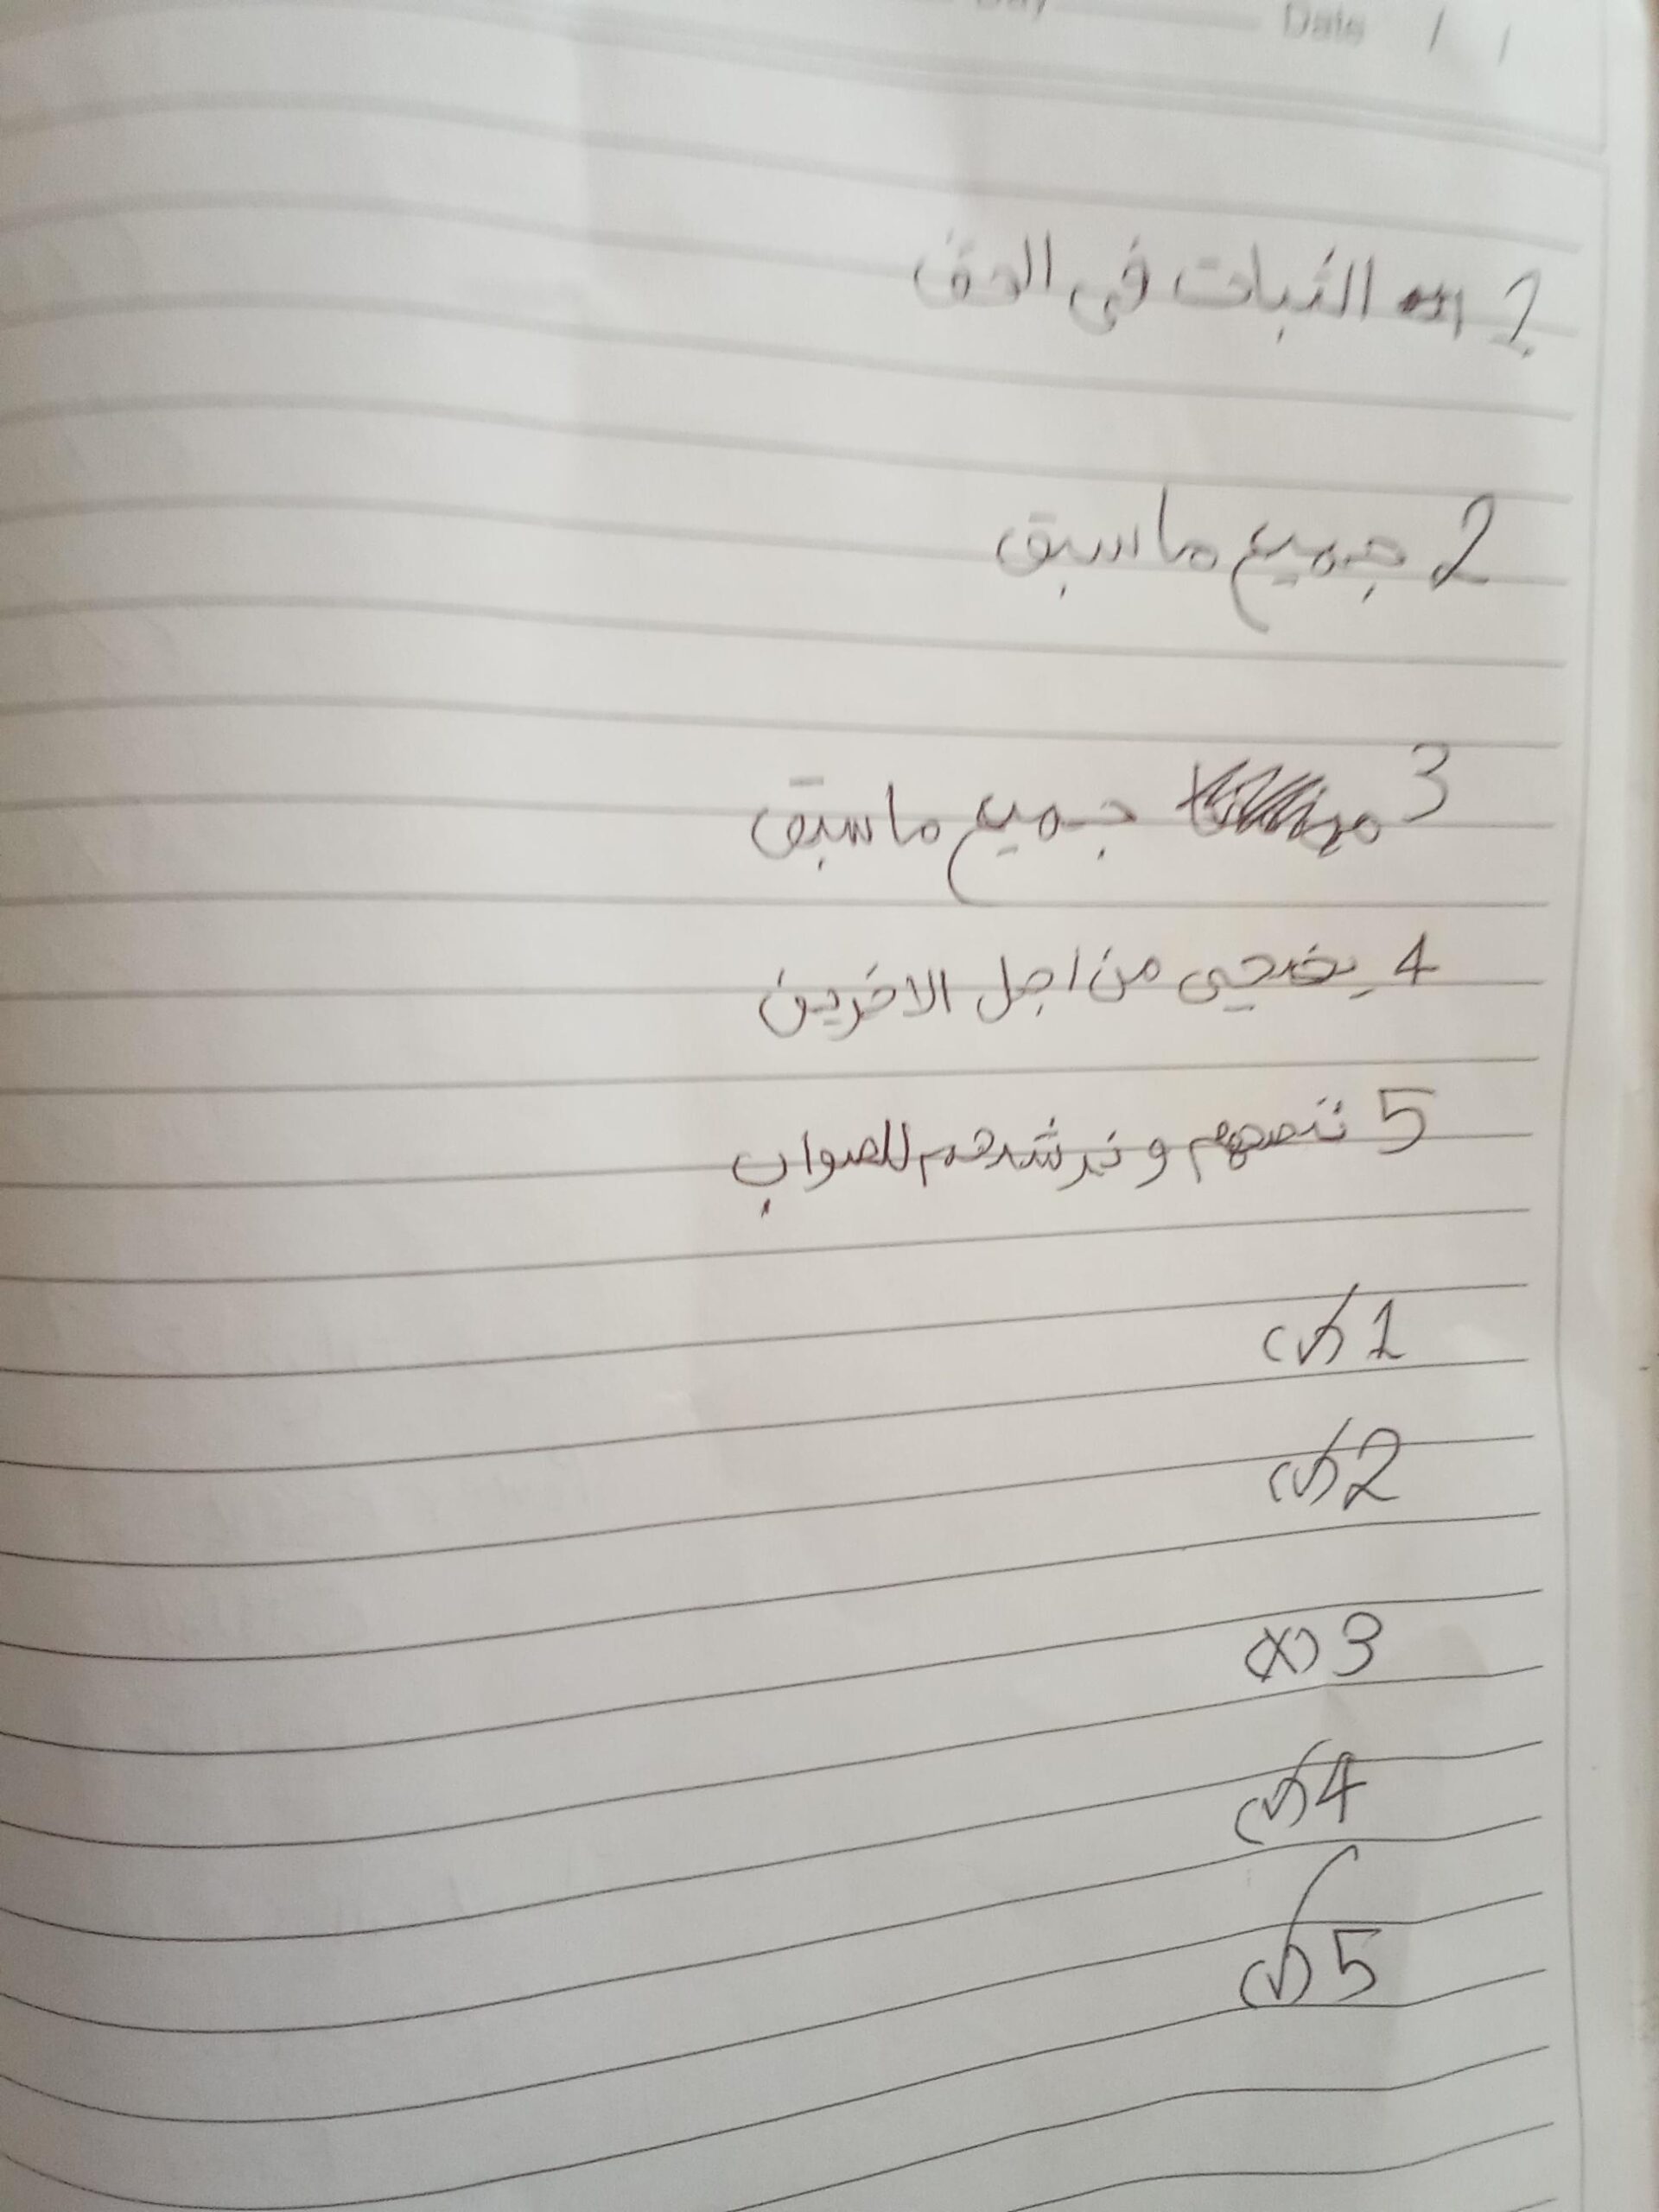 Date / /
1 الثبات في الحق
2 جميع ما سبق
3 جميع ما سبق
4 يضحي من اجل الاخرين
5 ننصحهم و نرشدهم للصواب
1 (✓)
2 (✓)
3 (x)
4 (✓)
5 (✓)